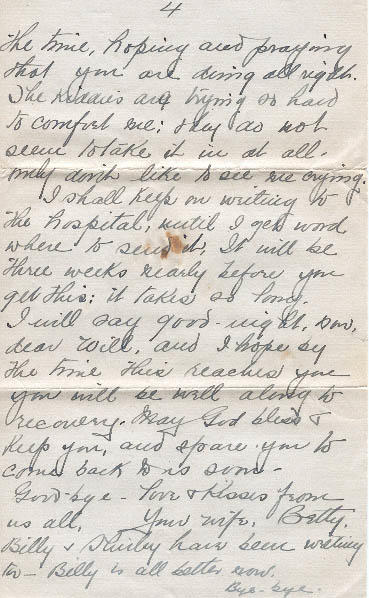 4
the time, hoping and praying
that you are doing all right.
The kiddies are trying so hard
to comfort me; they do not
seem to take it in at all.
only don't like to see me crying.
I shall keep on writing to
the hospital, until I get word
where to send it. It will be
three weeks nearly before you
get this; it takes so long.
I will say good-night, now,
dear Will, and I hope by
the time this reaches you
you will be well along to
recovery. May God bless &
keep you, and spare you to
come back to us soon -
Good-bye - Love & kisses from
us all, Your wife, Betty.
Billy & Shirley have been writing
too - Billy is all better now.
Bye-bye.